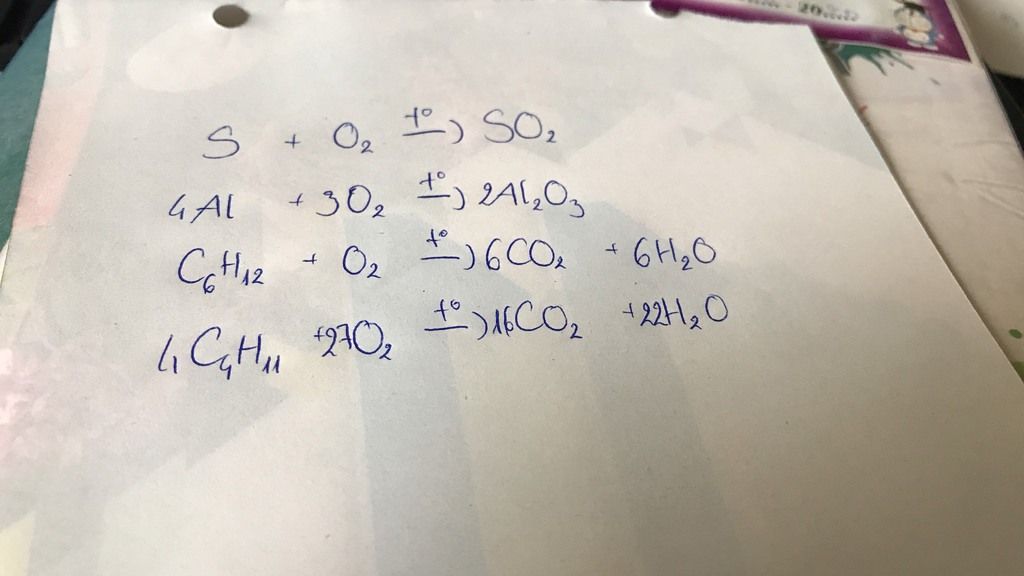 S + O₂ t°→ SO₂
4Al + 3O₂ t°→ 2Al₂O₃
C₆H₁₂ + O₂ t°→ 6CO₂ + 6H₂O
4C₄H₁₁ + 27O₂ t°→ 16CO₂ + 22H₂O